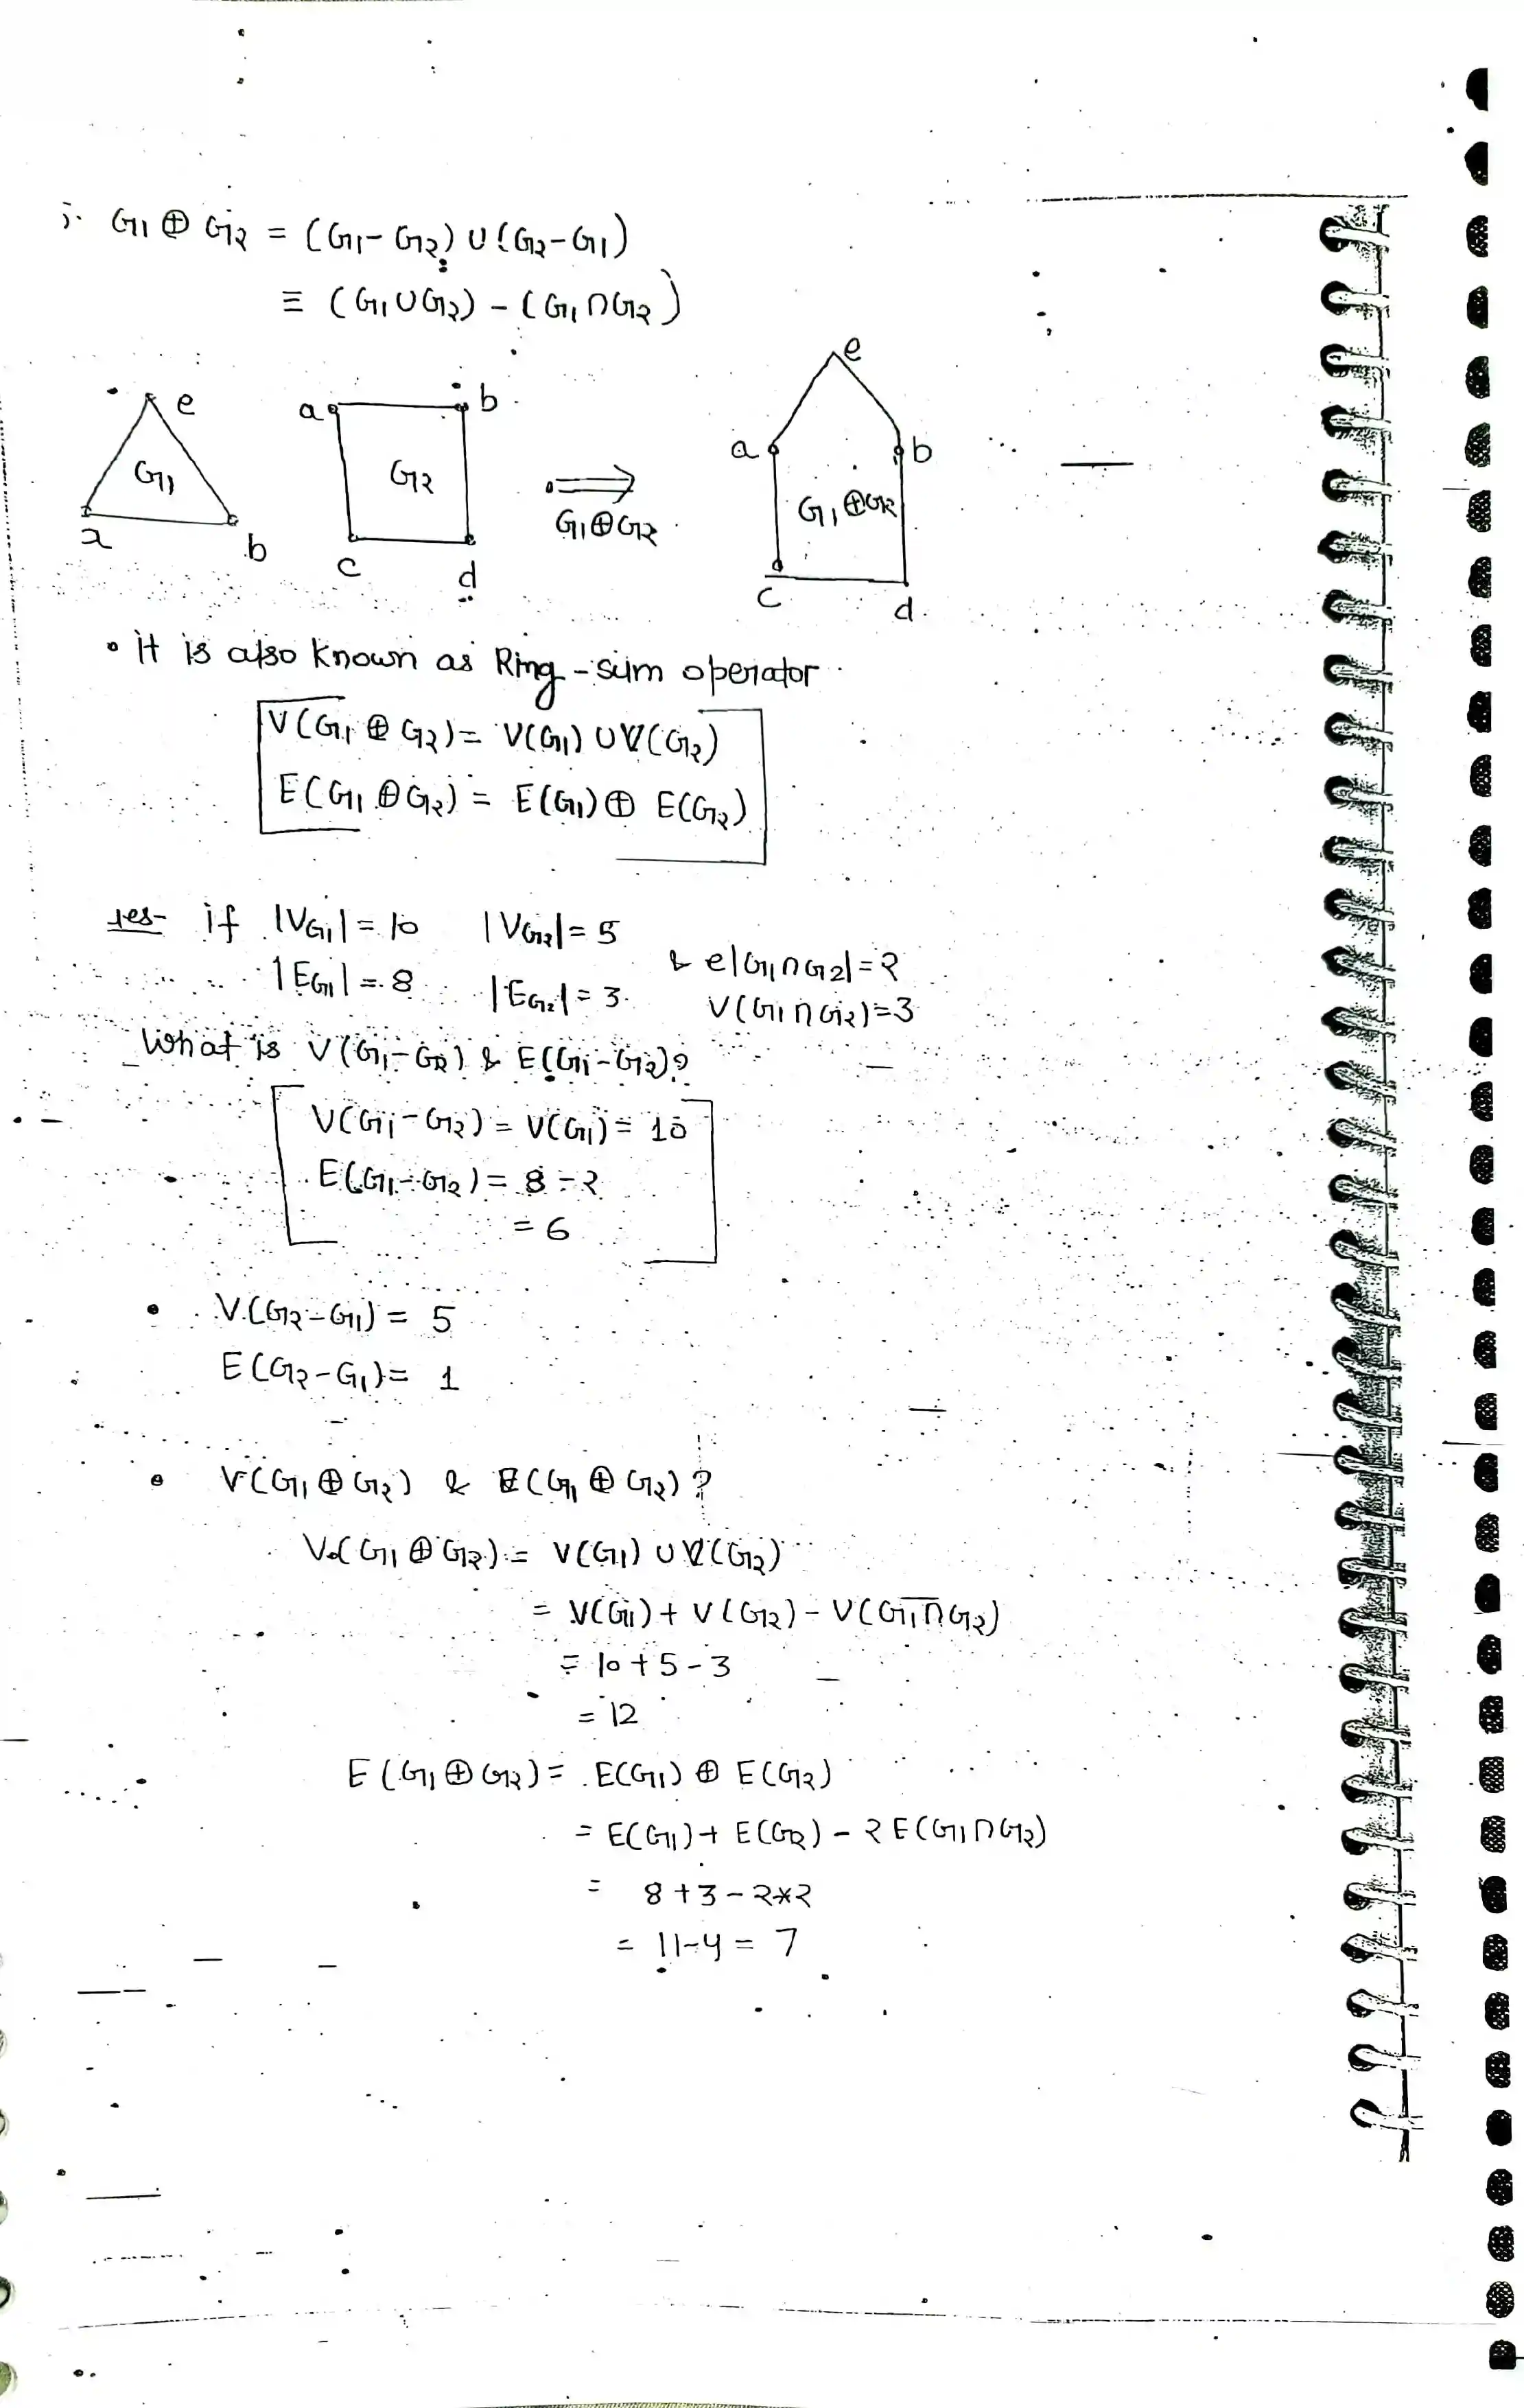 G1 ⊕ G2 = (G1- G2) ∪ (G2-G1)
≡ (G1∪G2) - (G1∩G2)
e
a b
e
G1
G2
a b
G1⊕G2
G1⊕G2
a b
c d
c d
• it is also known as Ring-sum operator
V(G1 ⊕ G2) = V(G1) ∪ V(G2)
E(G1 ⊕ G2) = E(G1) ⊕ E(G2)
if |VG1| = 10 |VG2| = 5
& e|G1∩G2| = 2
|EG1| = 8 |EG2| = 3
V(G1∩G2) = 3
What is V(G1-G2) & E(G1-G2)?
V(G1-G2) = V(G1) = 10
E(G1-G2) = 8-2
= 6
• V(G2-G1) = 5
E(G2-G1) = 1
• V(G1⊕G2) & E(G1⊕G2)?
V(G1⊕G2) = V(G1) ∪ V(G2)
= V(G1) + V(G2) - V(G1∩G2)
= 10+5-3
= 12
E(G1⊕G2) = E(G1) ⊕ E(G2)
= E(G1) + E(G2) - 2E(G1∩G2)
= 8+3-2*2
= 11-4 = 7